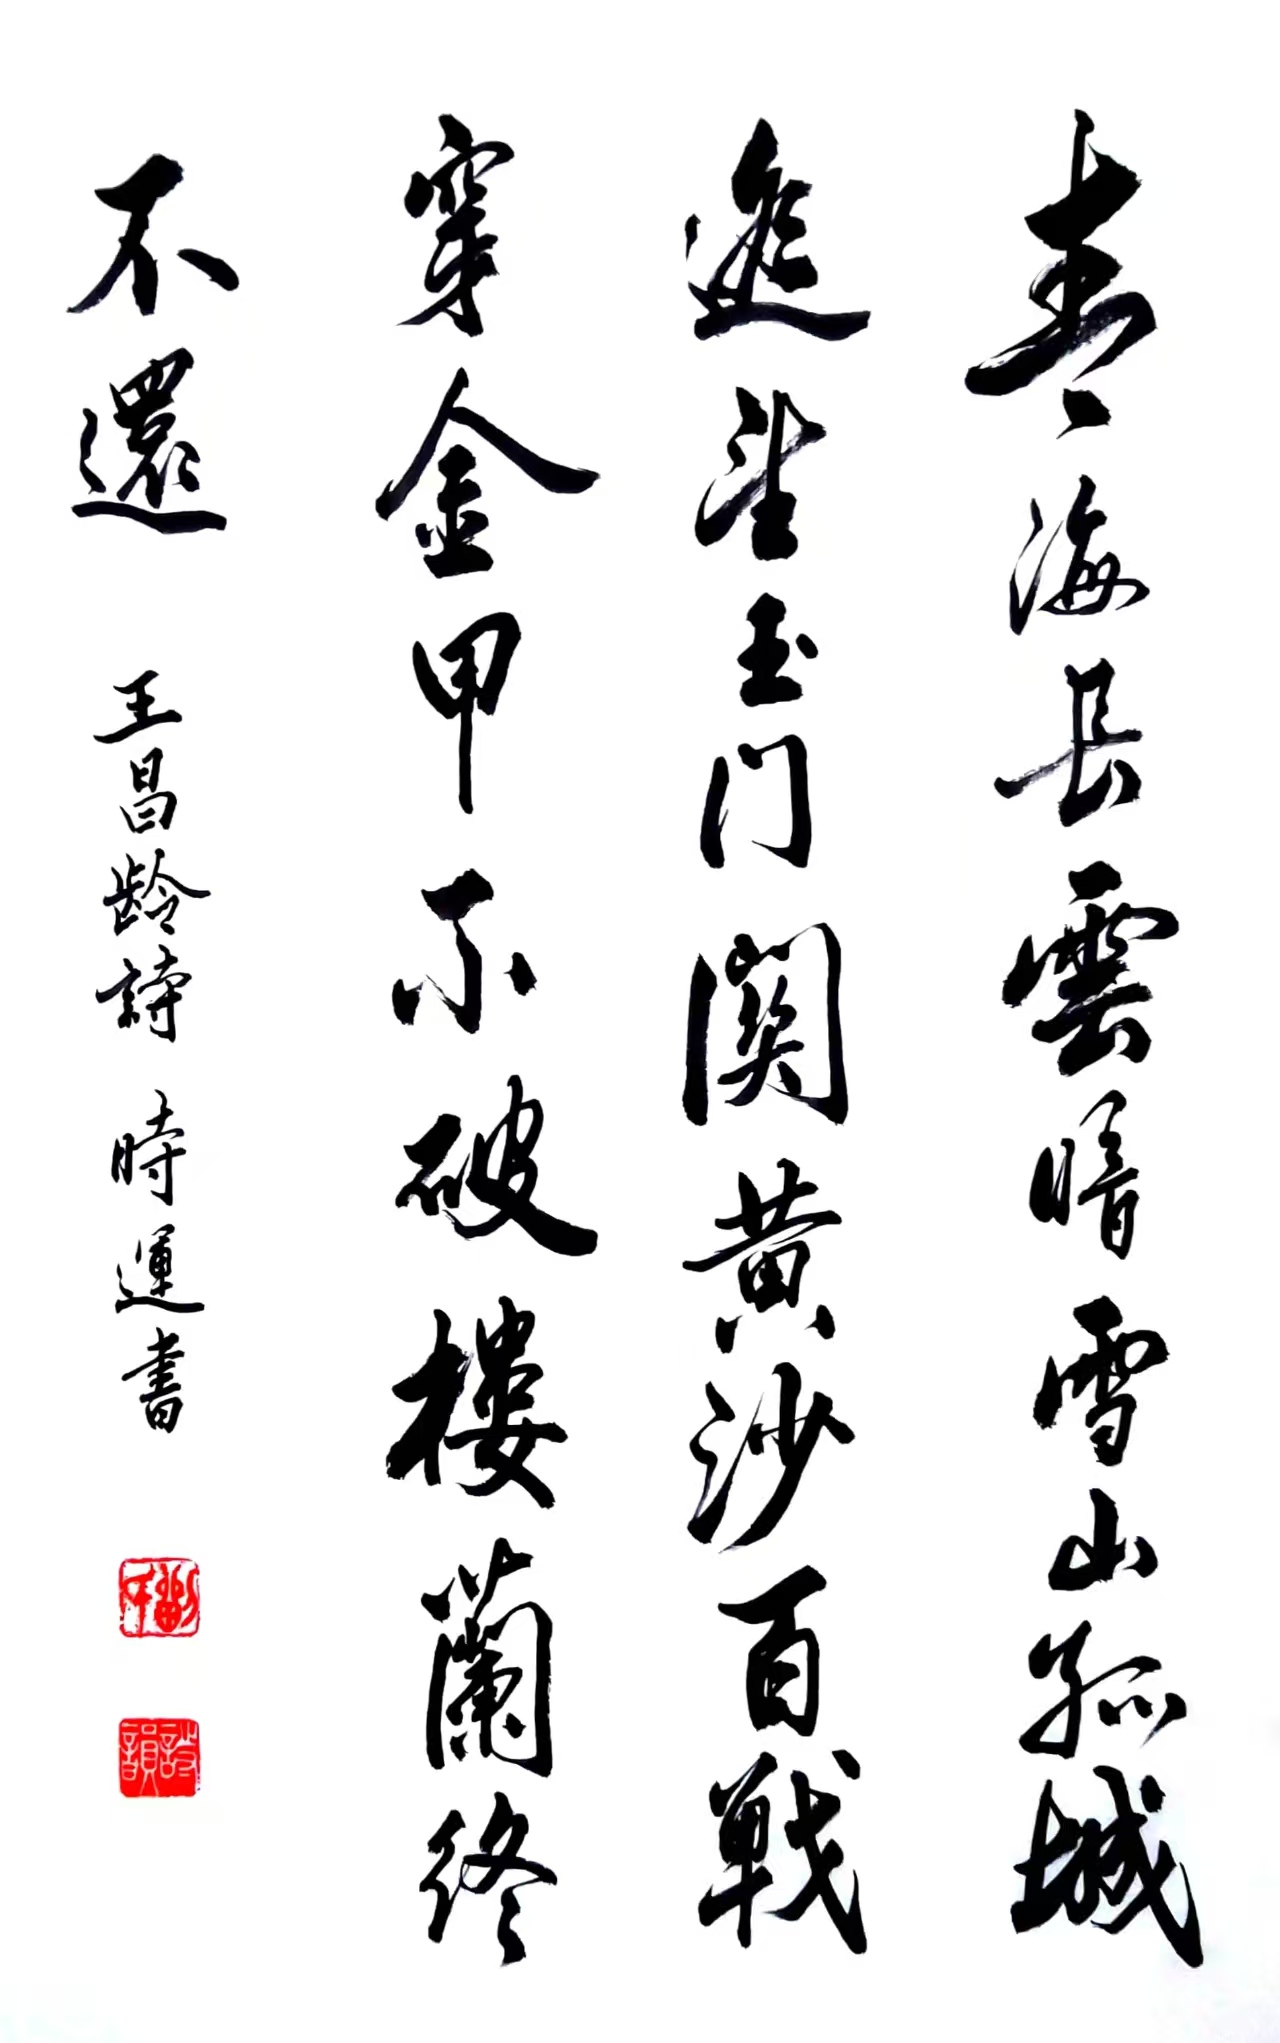 青海長雲暗雪山孤城
遙望玉门関黄沙百戦
穿金甲不破樓蘭終
不還
王昌龄詩 時運書